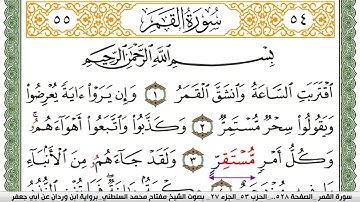 ٥٥ سُورَةُ القَمَرِ ٥٤
بِسْمِ اللَّهِ الرَّحْمَٰنِ الرَّحِيمِ
ٱقْتَرَبَتِ ٱلسَّاعَةُ وَٱنشَقَّ ٱلْقَمَرُ ١ وَإِن يَرَوْا۟ ءَايَةً يُعْرِضُوا۟
وَيَقُولُوا۟ سِحْرٌ مُّسْتَمِرٌّ ٢ وَكَذَّبُوا۟ وَٱتَّبَعُوٓا۟ أَهْوَآءَهُمُۥ
وَكُلُّ أَمْرٍ مُّسْتَقِرٍّ ٣ وَلَقَدْ جَآءَهُمُۥ مِنَ ٱلْأَنۢبَآءِ
سورة القمر_الصفحة ٥٢٨_الحزب ٥٣_الجزء ٢٧_ بصوت الشيخ مفتاح محمد السلطني برواية ابن وردان عن أبي جعفر